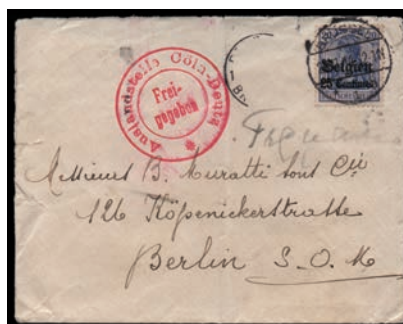 Auslandstelle Cöln-Deutz
Frei-
gegeben
20 20
Belgien
25 Centimes
Messieurs B. Muratti Sons Cie
126 Köpenickerstrasse
Berlin S. O. 16